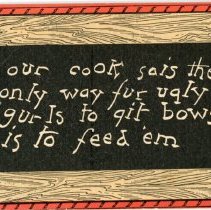 our cook sais the
only way fur ugly
gurls to git bows
is to feed 'em